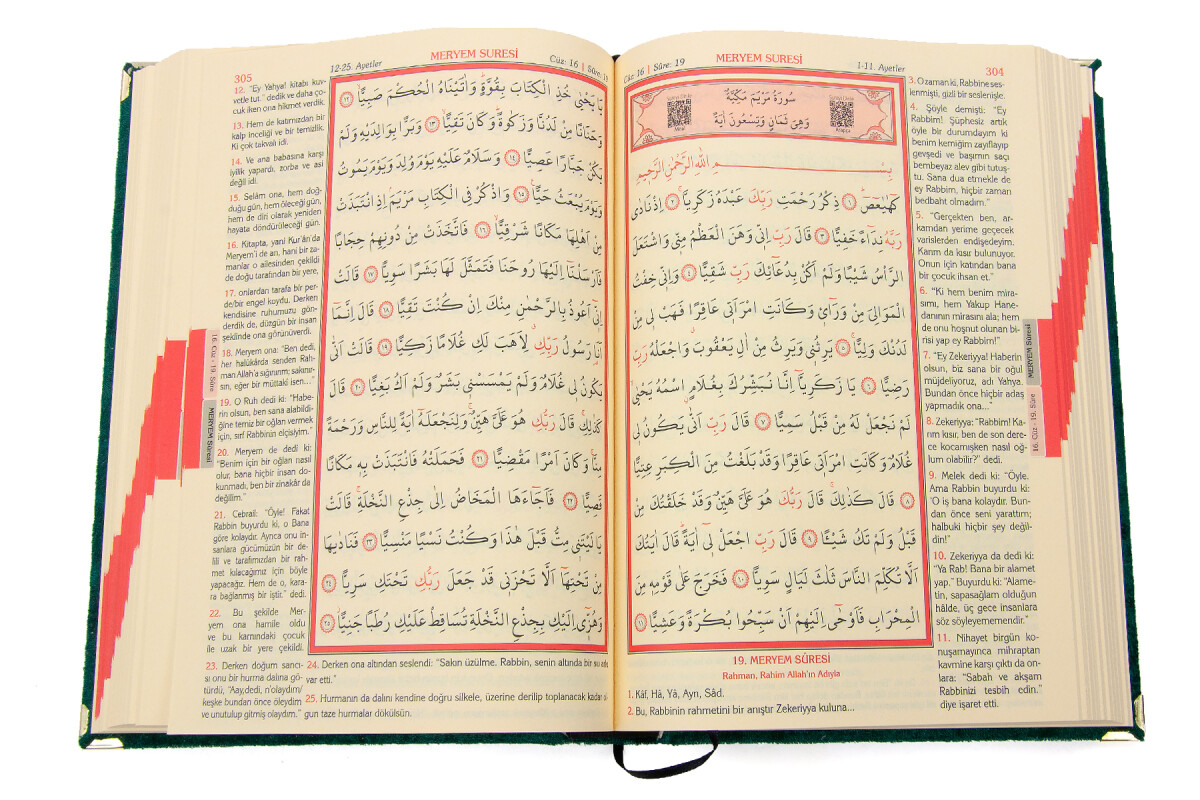 Cüz: 16 | Sûre: 19 MERYEM SURESİ 1-11. Ayetler 304
سُورَةُ مَرْيَمَ مَكِّيَّةٌ
وَهِيَ ثَمَانٍ وَتِسْعُونَ اٰيَةً
بِسْمِ اللّٰهِ الرَّحْمٰنِ الرَّحِيمِ
كٓهٰيٰعٓصٓ ﴿١﴾ ذِكْرُ رَحْمَتِ رَبِّكَ عَبْدَهُ زَكَرِيَّا ﴿٢﴾ اِذْ نَادٰى
رَبَّهُ نِدَٓاءً خَفِيًّا ﴿٣﴾ قَالَ رَبِّ اِنّ۪ي وَهَنَ الْعَظْمُ مِنّ۪ي وَاشْتَعَلَ
الرَّأْسُ شَيْبًا وَلَمْ اَكُنْ بِدُعَٓائِكَ رَبِّ شَقِيًّا ﴿٤﴾ وَاِنّ۪ي خِفْتُ
الْمَوَالِيَ مِنْ وَرَٓائ۪ي وَكَانَتِ امْرَاَت۪ي عَاقِرًا فَهَبْ ل۪ي مِنْ
لَدُنْكَ وَلِيًّا ﴿٥﴾ يَرِثُن۪ي وَيَرِثُ مِنْ اٰلِ يَعْقُوبَ وَاجْعَلْهُ رَبِّ
رَضِيًّا ﴿٦﴾ يَا زَكَرِيَّٓا اِنَّا نُبَشِّرُكَ بِغُلَامٍ اسْمُهُ يَحْيٰى
لَمْ نَجْعَلْ لَهُ مِنْ قَبْلُ سَمِيًّا ﴿٧﴾ قَالَ رَبِّ اَنّٰى يَكُونُ ل۪ي
غُلَامٌ وَكَانَتِ امْرَاَت۪ي عَاقِرًا وَقَدْ بَلَغْتُ مِنَ الْكِبَرِ عِتِيًّا
﴿٨﴾ قَالَ كَذٰلِكَ قَالَ رَبُّكَ هُوَ عَلَيَّ هَيِّنٌ وَقَدْ خَلَقْتُكَ مِنْ
قَبْلُ وَلَمْ تَكُ شَيْـًٔا ﴿٩﴾ قَالَ رَبِّ اجْعَلْ ل۪ٓي اٰيَةً قَالَ اٰيَتُكَ
اَلَّا تُكَلِّمَ النَّاسَ ثَلٰثَ لَيَالٍ سَوِيًّا ﴿١٠﴾ فَخَرَجَ عَلٰى قَوْمِه۪ مِنَ
الْمِحْرَابِ فَاَوْحٰٓى اِلَيْهِمْ اَنْ سَبِّحُوا بُكْرَةً وَعَشِيًّا ﴿١١﴾
19. MERYEM SÛRESİ
Rahman, Rahim Allah'ın Adıyla
1. Kâf, Hâ, Yâ, Ayn, Sâd.
2. Bu, Rabbinin rahmetini bir anıştır Zekeriyya kuluna...
3. O zaman ki, Rabbine ses-
lenmişti, gizli bir seslenişle.
4. Şöyle demişti: "Ey
Rabbim! Şüphesiz artık
öyle bir durumdayım ki
benim kemiğim zayıflayıp
gevşedi ve başımın saçı
bembeyaz alev gibi tutuş-
tu. Sana dua etmekle de
ey Rabbim, hiçbir zaman
bedbaht olmadım."
5. "Gerçekten ben, ar-
kamdan yerime geçecek
varislerden endişedeyim.
Karım da kısır bulunuyor.
Onun için katından bana
bir çocuk ihsan et."
6. "Ki hem benim mira-
sımı, hem Yakup Hane-
danının mirasını ala; hem
de onu hoşnut olunan bi-
risi yap ey Rabbim!"
7. "Ey Zekeriyya! Haberin
olsun, biz sana bir oğul
müjdeliyoruz, adı Yahya.
Bundan önce hiçbir adaş
yapmadık ona..."
8. Zekeriyya: "Rabbim! Ka-
rım kısır, ben de son dere-
ce kocamışken nasıl oğ-
lum olabilir?" dedi.
9. Melek dedi ki: "Öyle.
Ama Rabbin buyurdu ki:
'O iş bana kolaydır. Bun-
dan önce seni yarattım;
halbuki hiçbir şey değil-
din!"
10. Zekeriyya da dedi ki:
"Ya Rab! Bana bir alamet
yap." Buyurdu ki: "Alame-
tin, sapasağlam olduğun
hâlde, üç gece insanlara
söz söyleyememendir."
11. Nihayet birgün ko-
nuşamayınca mihraptan
kavmine karşı çıktı da on-
lara: "Sabah ve akşam
Rabbinizi tesbih edin."
diye işaret etti.
MERYEM Sûresi
16. Cüz - 19. Sûre
305 12-25. Ayetler MERYEM SURESİ Cüz: 16 | Sûre: 19
يَا يَحْيٰى خُذِ الْكِتَابَ بِقُوَّةٍ وَاٰتَيْنَاهُ الْحُكْمَ صَبِيًّا ﴿١٢﴾
وَحَنَانًا مِنْ لَدُنَّا وَزَكٰوةً وَكَانَ تَقِيًّا ﴿١٣﴾ وَبَرًّا بِوَالِدَيْهِ وَلَمْ
يَكُنْ جَبَّارًا عَصِيًّا ﴿١٤﴾ وَسَلَامٌ عَلَيْهِ يَوْمَ وُلِدَ وَيَوْمَ يَمُوتُ
وَيَوْمَ يُبْعَثُ حَيًّا ﴿١٥﴾ وَاذْكُرْ فِي الْكِتَابِ مَرْيَمَ اِذِ انْتَبَذَتْ
مِنْ اَهْلِهَا مَكَانًا شَرْقِيًّا ﴿١٦﴾ فَاتَّخَذَتْ مِنْ دُونِهِمْ حِجَابًا
فَاَرْسَلْنَٓا اِلَيْهَا رُوحَنَا فَتَمَثَّلَ لَهَا بَشَرًا سَوِيًّا ﴿١٧﴾ قَالَتْ
اِنّ۪ٓي اَعُوذُ بِالرَّحْمٰنِ مِنْكَ اِنْ كُنْتَ تَقِيًّا ﴿١٨﴾ قَالَ اِنَّمَٓا
اَنَا رَسُولُ رَبِّكِ لِاَهَبَ لَكِ غُلَامًا زَكِيًّا ﴿١٩﴾ قَالَتْ اَنّٰى
يَكُونُ ل۪ي غُلَامٌ وَلَمْ يَمْسَسْن۪ي بَشَرٌ وَلَمْ اَكُ بَغِيًّا ﴿٢٠﴾ قَالَ
كَذٰلِكِ قَالَ رَبُّكِ هُوَ عَلَيَّ هَيِّنٌ وَلِنَجْعَلَهُٓ اٰيَةً لِلنَّاسِ وَرَحْمَةً
مِنَّا وَكَانَ اَمْرًا مَقْضِيًّا ﴿٢١﴾ فَحَمَلَتْهُ فَانْتَبَذَتْ بِه۪ مَكَانًا
قَصِيًّا ﴿٢٢﴾ فَاَجَٓاءَهَا الْمَخَاضُ اِلٰى جِذْعِ النَّخْلَةِ قَالَتْ
يَا لَيْتَن۪ي مِتُّ قَبْلَ هٰذَا وَكُنْتُ نَسْيًا مَنْسِيًّا ﴿٢٣﴾ فَنَادٰيهَا
مِنْ تَحْتِهَٓا اَلَّا تَحْزَن۪ي قَدْ جَعَلَ رَبُّكِ تَحْتَكِ سَرِيًّا ﴿٢٤﴾
وَهُزّ۪ٓي اِلَيْكِ بِجِذْعِ النَّخْلَةِ تُسَاقِطْ عَلَيْكِ رُطَبًا جَنِيًّا ﴿٢٥﴾
12. "Ey Yahya! kitabı kuv-
vetle tut." dedik ve daha ço-
cuk iken ona hikmet verdik.
13. Hem de katımızdan bir
kalp inceliği ve bir temizlik.
Ki çok takvalı idi.
14. Ve ana babasına karşı
iyilik yapardı, zorba ve asi
değil idi.
15. Selâm ona, hem doğ-
duğu gün, hem öleceği gün,
hem de diri olarak yeniden
hayata döndürüleceği gün.
16. Kitapta, yani Kur'ân'da
Meryem'i de an, hani bir za-
manlar o ailesinden çekildi
de doğu tarafından bir yere,
17. onlardan tarafa bir per-
de/bir engel koydu. Derken
kendisine ruhumuzu gön-
derdik de, düzgün bir insan
şeklinde ona görünüverdi.
18. Meryem ona: "Ben dedi,
her halükârda senden Rah-
man Allah'a sığınırım; sakınır-
sın, eğer bir müttaki isen..."
19. O Ruh dedi ki: "Habe-
rin olsun, ben sana alabildi-
ğine temiz bir oğlan vermek
için, sırf Rabbinin elçisiyim."
20. Meryem de dedi ki:
"Benim için bir oğlan nasıl
olur, bana hiçbir insan do-
kunmadı, ben bir zinakâr da
değilim."
21. Cebrail: "Öyle! Fakat
Rabbin buyurdu ki, o Bana
göre kolaydır. Ayrıca onu in-
sanlara gücümüzün bir de-
lili ve tarafımızdan bir rah-
met kılacağımız için böyle
yapacağız. Hem de o, kara-
ra bağlanmış bir iştir." dedi.
22. Bu şekilde Mer-
yem ona hamile oldu
ve bu karnındaki çocuk
ile uzak bir yere çekildi.
23. Derken doğum sancı-
sı onu bir hurma dalına gö-
türdü, "Aay, dedi, n'olaydım/
keşke bundan önce öleydim
ve unutulup gitmiş olaydım."
24. Derken ona altından seslendi: "Sakın üzülme. Rabbin, senin altında bir su
var etti."
25. Hurmanın dalını kendine doğru silkele, üzerine derilip toplanacak kadar
gun taze hurmalar dökülsün.
16. Cüz - 19. Sûre
MERYEM Sûresi